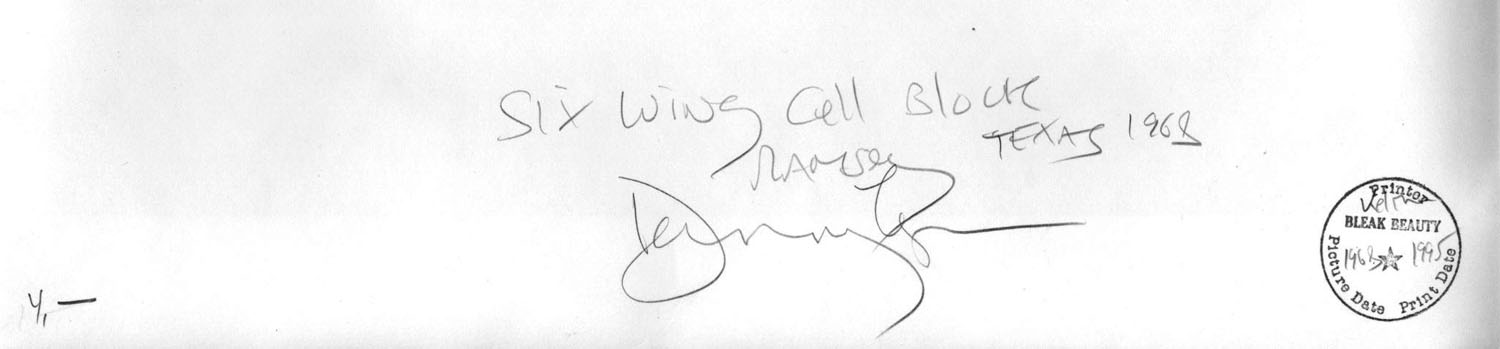 Six Wing Cell Block
TEXAS 1968
RAMSEY
Danny
Printer
BLEAK BEAUTY
1968 1995
Picture Date Print Date
4,—